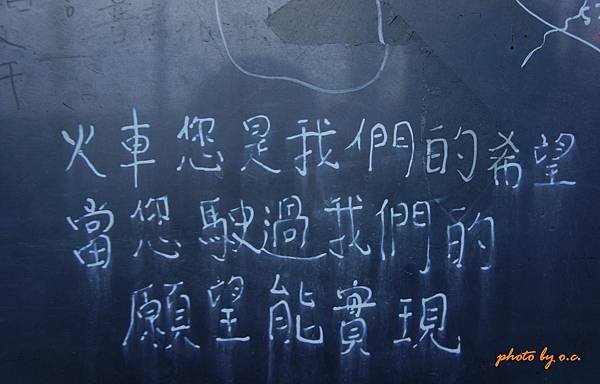 火車您是我們的希望
當您駛過我們的
願望能實現
photo by o.c.